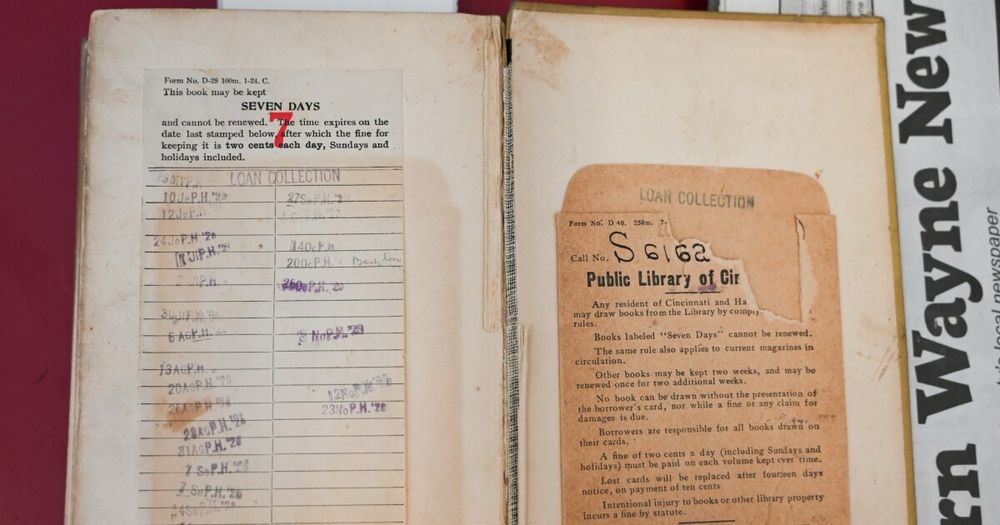 Form No. D-29 100m. 1-24. C.
This book may be kept
SEVEN DAYS
and cannot be renewed. The time expires on the
date last stamped below, after which the fine for
keeping it is two cents each day, Sundays and
holidays included.
7
LOAN COLLECTION
10JeP.H.'28
12Je
24JeP.H.'28
P.H.
5 AGP.H.
13AGP.H.
20AGP.H.'28
P.H.'28
28AGP.H.'28
31AGP.H.'28
7 SeP.H.'28
7 SeP.H.'28
14Se
27SeP.H.'2
14OcP.H.
20OcP.H.
P.H. '28
NoP.H.'28
12NoP.H.'28
23NoP.H.'28
LOAN COLLECTION
Form No. D 40. 250m. 7-
Call No. S 6162
Public Library of Cir
Any resident of Cincinnati and Ha
may draw books from the Library by comply
rules.
Books labeled "Seven Days" cannot be renewed.
The same rule also applies to current magazines in
circulation.
Other books may be kept two weeks, and may be
renewed once for two additional weeks.
No book can be drawn without the presentation of
the borrower's card, nor while a fine or any claim for
damages is due.
Borrowers are responsible for all books drawn on
their cards.
A fine of two cents a day (including Sundays and
holidays) must be paid on each volume kept over time.
Lost cards will be replaced after fourteen days
notice, on payment of ten cents
Intentional injury to books or other library property
incurs a fine by statute.
rn Wayne New
local newspaper